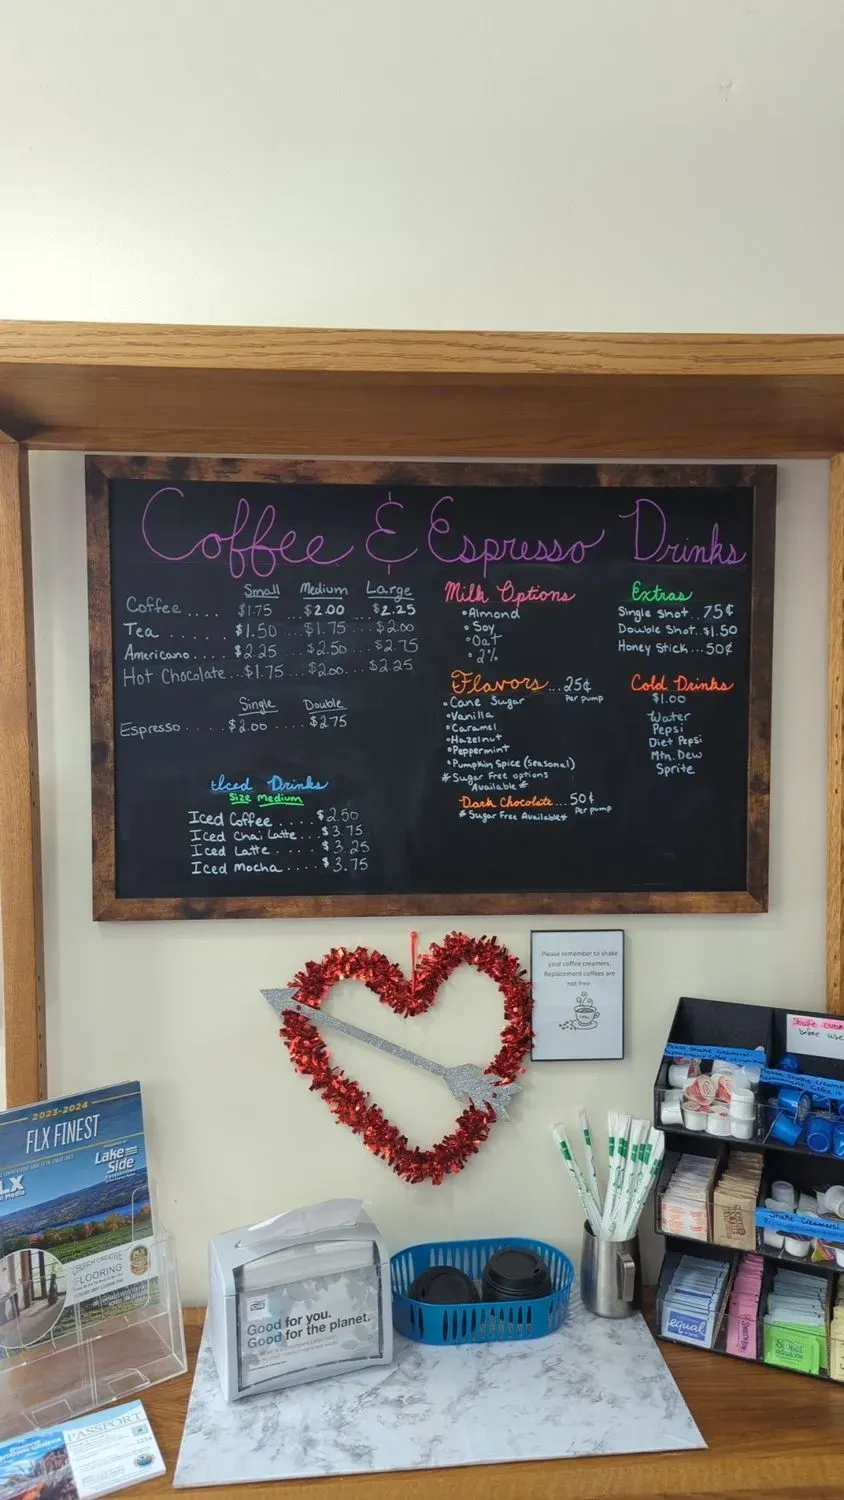 Coffee & Espresso Drinks
Small Medium Large
Coffee .... $1.75 ... $2.00 ... $2.25
Tea ...... $1.50 ... $1.75 .... $2.00
Americano.... $2.25 ... $2.50 .... $2.75
Hot Chocolate...$1.75 ...$2.00.... $2.25
Single Double
Espresso .... $2.00 ..... $2.75
Iced Drinks
Size Medium
Iced Coffee .... $2.50
Iced Chai Latte... $3.75
Iced Latte ..... $3.25
Iced Mocha .... $3.75
Milk Options
•Almond
•Soy
•Oat
•2%
Flavors...25¢
Per pump
•Cane Sugar
•Vanilla
•Caramel
•Hazelnut
•Peppermint
•Pumpkin Spice (Seasonal)
*Sugar Free options
Available*
Dark Chocolate...50¢
Per pump
*Sugar Free Available*
Extras
Single Shot...75¢
Double Shot..$1.50
Honey Stick...50¢
Cold Drinks
$1.00
Water
Pepsi
Diet Pepsi
Mtn. Dew
Sprite
Please remember to shake
your coffee creamers.
Replacement coffees are
not free
Shake cream
before use
2023-2024
FLX FINEST
Lake
Side
LX
FLOORING
Good for you.
Good for the planet.
PASSPORT
equal